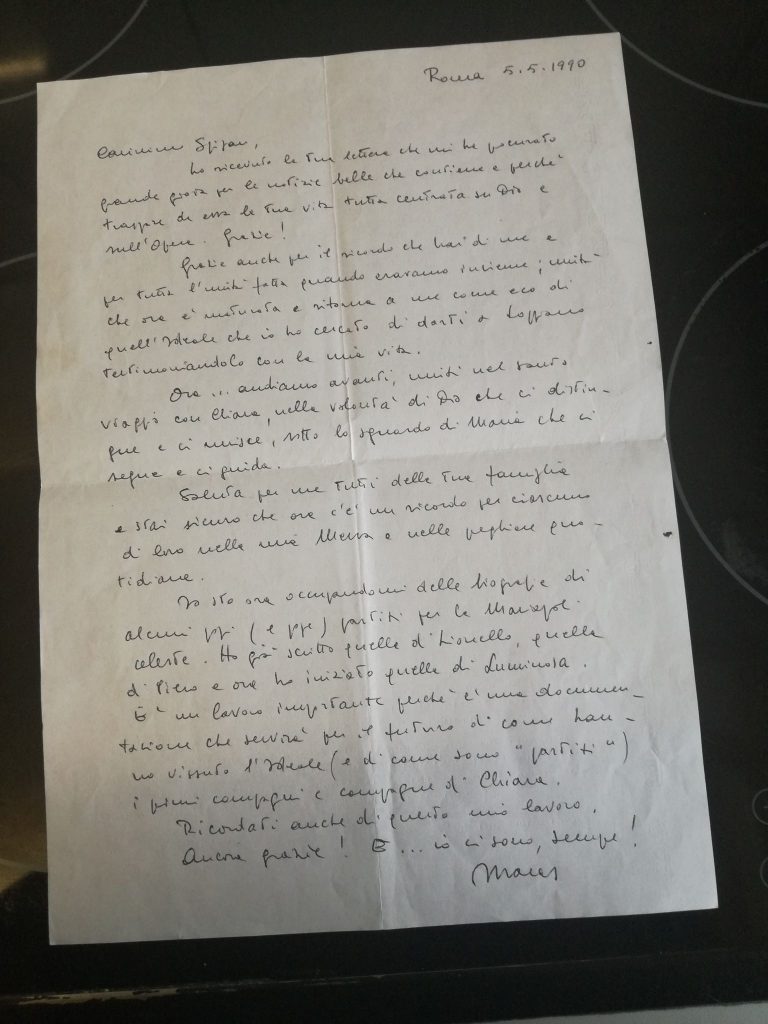 Roma 5.5.1990
Carissimo Stefan,
ho ricevuto la tua lettera che mi ha procurato
grande gioia per le notizie belle che contiene e perché
traspare da essa la tua vita tutta centrata su Dio e
sull'Opera. Grazie!
Grazie anche per il ricordo che hai di me e
per tutta l'unità fatta quando eravamo insieme; unità
che ora è maturata e ritorna a me come eco di
quell'Ideale che io ho cercato di darti a Loppiano
testimoniandolo con la mia vita.
Ora ... andiamo avanti, uniti nel santo
viaggio con Chiara, nella volontà di Dio che ci distin-
gue e ci unisce, sotto lo sguardo di Maria che ci
segue e ci guida.
Saluta per me tutti della tua famiglia
e stai sicuro che ora c'è un ricordo per ciascuno
di loro nella mia Messa e nelle preghiere quo-
tidiane.
Io sto ora occupandomi delle biografie di
alcuni ppi (e ppe) partiti per la Mariapoli
celeste. Ho già scritto quella di Lionello, quella
di Piero e ora ho iniziato quella di Luminosa.
È un lavoro importante perchè è una documen-
tazione che servirà per il futuro di come han-
no vissuto l'Ideale (e di come sono "partiti")
i primi compagni e compagne di Chiara.
Ricordati anche di questo mio lavoro.
Ancora grazie! E ... io ci sono, sempre!